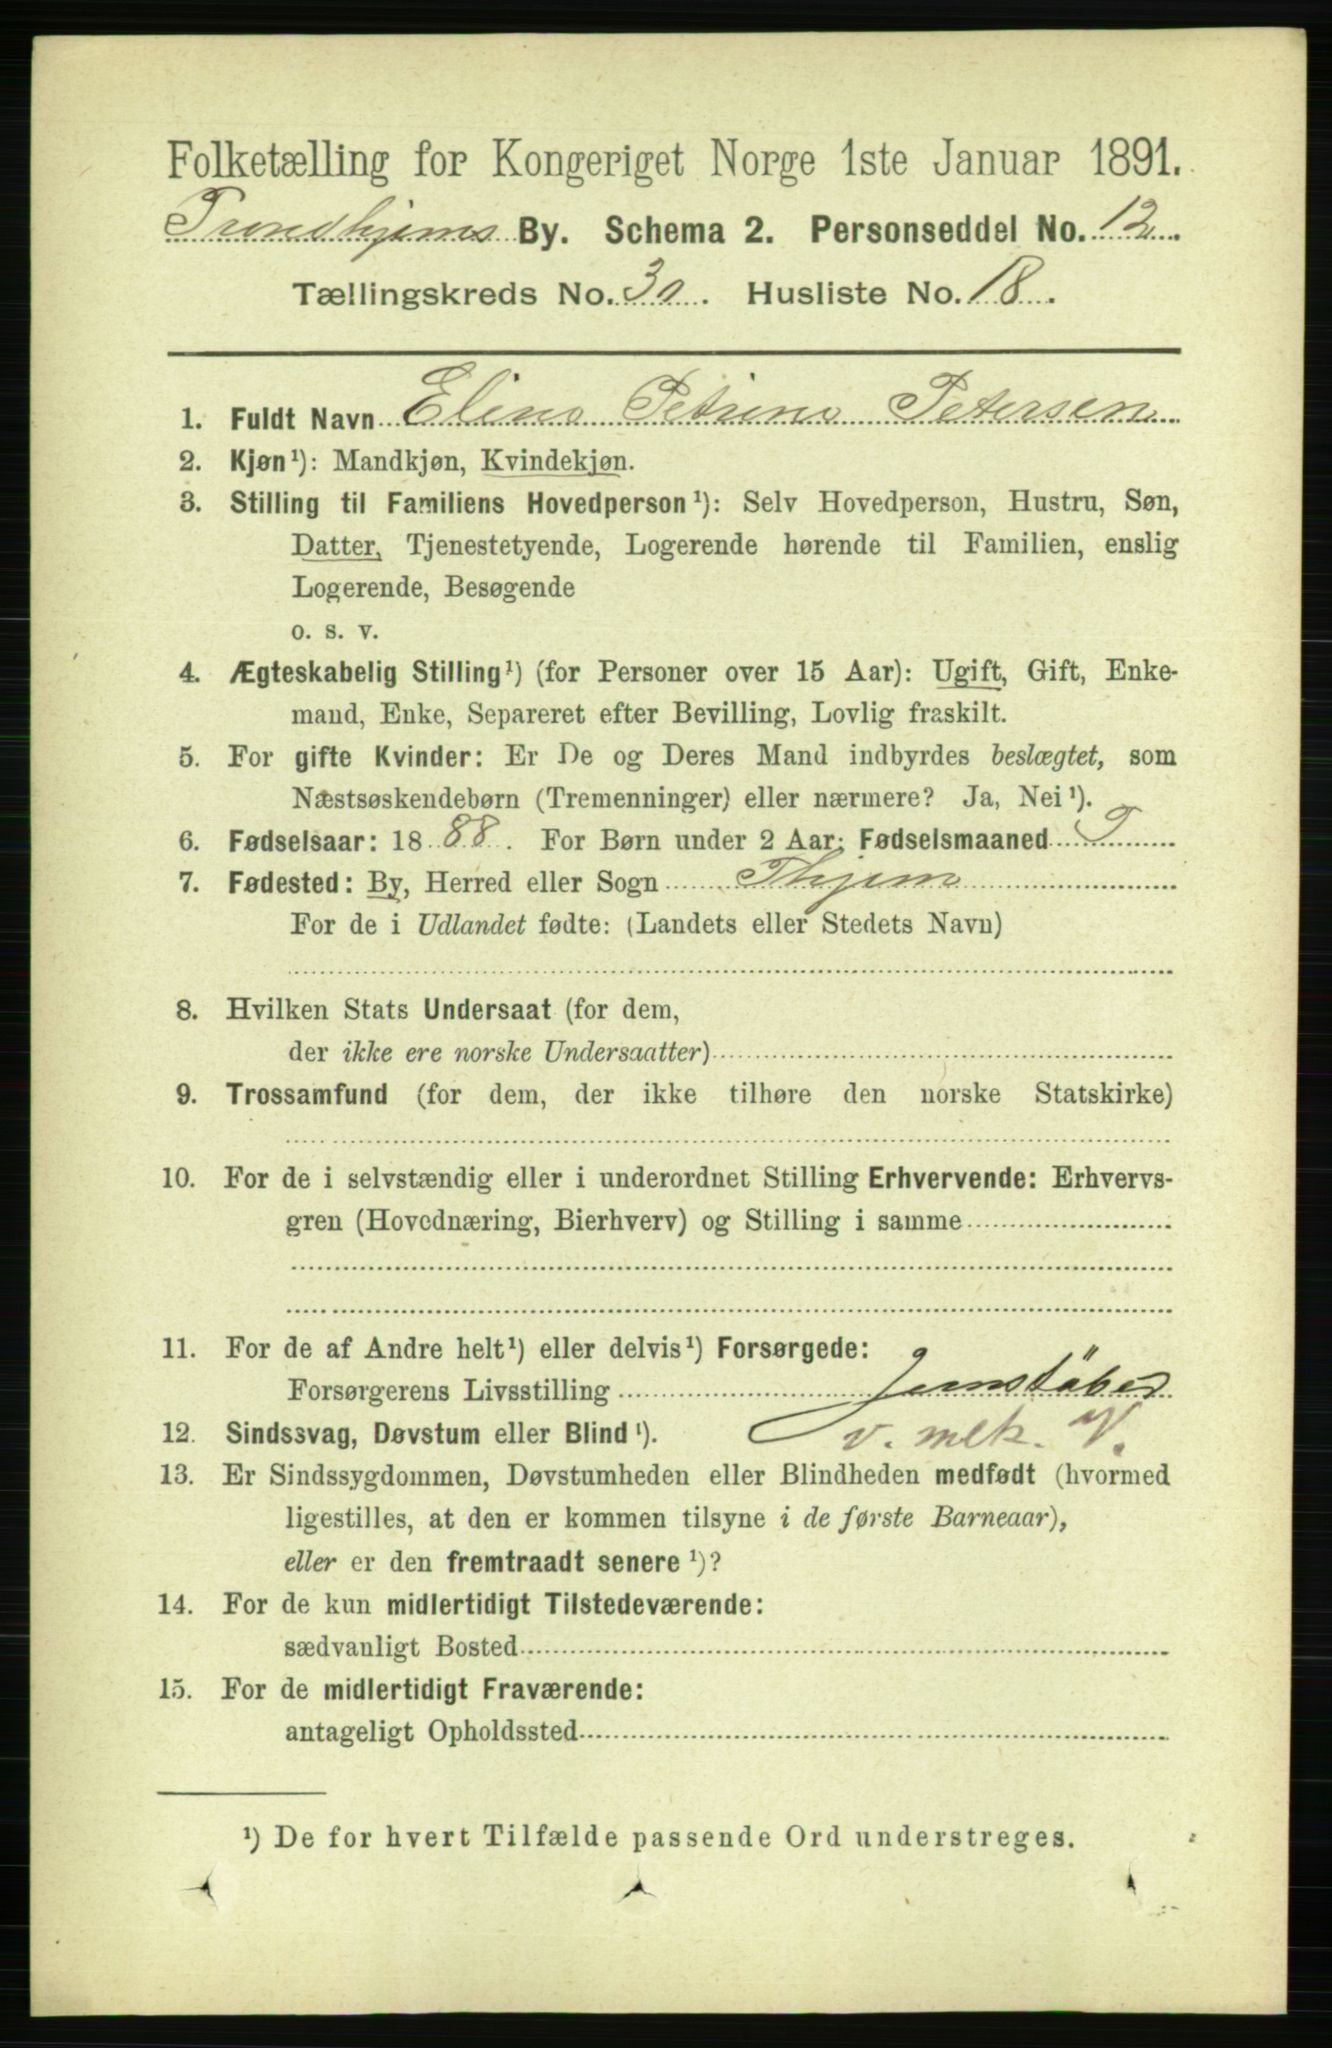 Folketælling for Kongeriget Norge 1ste Januar 1891.
Trondhjems By. Schema 2. Personseddel No. 12
Tællingskreds No. 30. Husliste No. 18.
1. Fuldt Navn Eline Petrine Petersen
2. Kjøn¹): Mandkjøn, Kvindekjøn.
3. Stilling til Familiens Hovedperson¹): Selv Hovedperson, Hustru, Søn,
Datter, Tjenestetyende, Logerende hørende til Familien, enslig
Logerende, Besøgende
o. s. v.
4. Ægteskabelig Stilling¹) (for Personer over 15 Aar): Ugift, Gift, Enke-
mand, Enke, Separeret efter Bevilling, Lovlig fraskilt.
5. For gifte Kvinder: Er De og Deres Mand indbyrdes beslægtet, som
Næstsøskendebørn (Tremenninger) eller nærmere? Ja, Nei¹).
6. Fødselsaar: 1888. For Børn under 2 Aar: Fødselsmaaned T
7. Fødested: By, Herred eller Sogn Thjem
For de i Udlandet fødte: (Landets eller Stedets Navn)
8. Hvilken Stats Undersaat (for dem,
der ikke ere norske Undersaatter)
9. Trossamfund (for dem, der ikke tilhøre den norske Statskirke)
10. For de i selvstændig eller i underordnet Stilling Erhvervende: Erhvervs-
gren (Hovednæring, Bierhverv) og Stilling i samme
11. For de af Andre helt¹) eller delvis¹) Forsørgede:
Forsørgerens Livsstilling Jernstöber
12. Sindssvag, Døvstum eller Blind¹). v. mek. V.
13. Er Sindssygdommen, Døvstumheden eller Blindheden medfødt (hvormed
ligestilles, at den er kommen tilsyne i de første Barneaar),
eller er den fremtraadt senere¹)?
14. For de kun midlertidigt Tilstedeværende:
sædvanligt Bosted
15. For de midlertidigt Fraværende:
antageligt Opholdssted
¹) De for hvert Tilfælde passende Ord understreges.